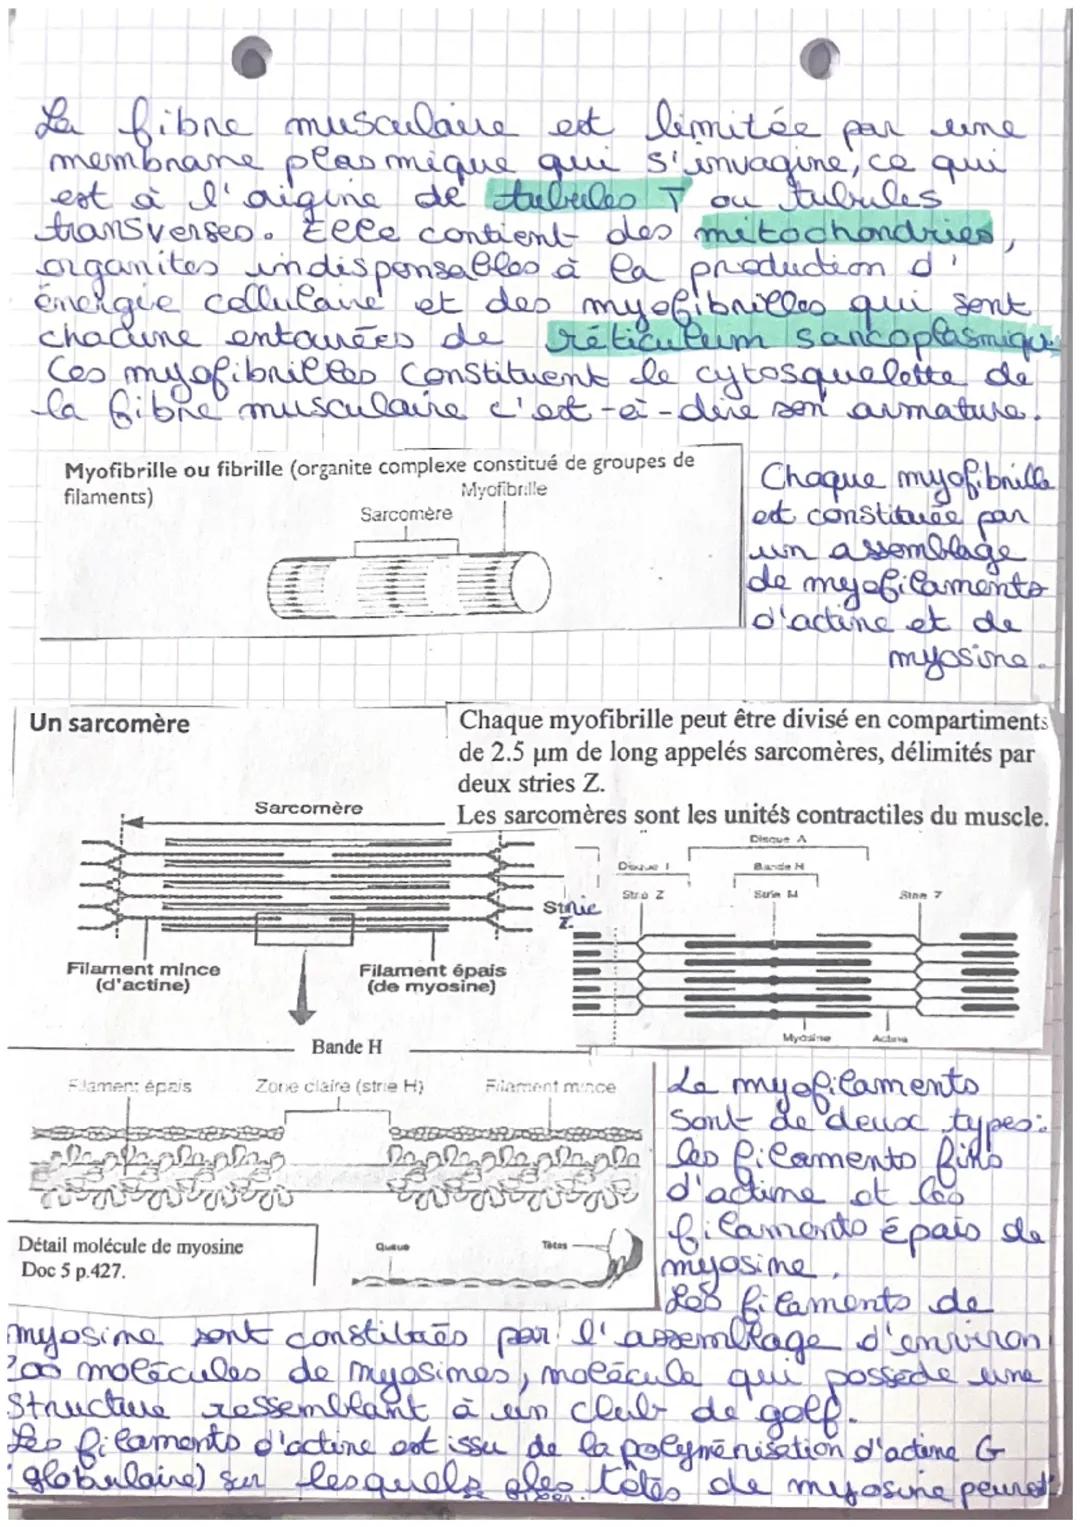 La fibre musculaire est limitée par une
membrane plasmique qui s'invagine, ce qui
est à l'origine de tubules T ou tubules
transverses. Elle contient des mitochondries,
organites indispensables à la production d'
énergie cellulaire et des myofibrilles qui sont
chacune entourées de réticulum sarcoplasmique
Ces myofibrilles constituent le cytosquelette de
la fibre musculaire c'est-à-dire son armature.
Myofibrille ou fibrille (organite complexe constitué de groupes de
filaments)
Myofibrille
Sarcomère
Chaque myofibrille
est constituée par
un assemblage
de myofilaments
d'actine et de
myosine.
Un sarcomère
Chaque myofibrille peut être divisé en compartiments
de 2.5 µm de long appelés sarcomères, délimités par
deux stries Z.
Les sarcomères sont les unités contractiles du muscle.
Sarcomère
Strie
Z.
Filament mince
(d'actine)
Filament épais
(de myosine)
Disque A
Disque I
Bande H
Strie Z
Strie M
Strie Z
Myosine
Actine
Bande H
Filament épais
Zone claire (strie H)
Filament mince
Détail molécule de myosine
Doc 5 p.427.
Queue
Têtes
Le myofilaments
sont de deux types:
les filaments fins
d'actine et les
filaments épais de
myosine.
Les filaments de
myosine sont constitués par l'assemblage d'environ
200 molécules de myosines, molécule qui possède une
structure ressemblant à un club de golf.
Les filaments d'actine est issu de la polymérisation d'actine G
(globulaire) sur lesquels des têtes de myosine peuvent